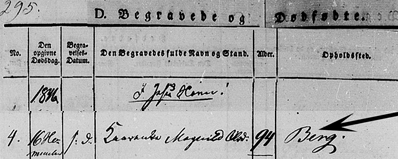 295.
D. Begravede og Dødfødte.
No.
Den opgivne Dødsdag.
Begravelses-Datum.
Den Begravedes fulde Navn og Stand.
Alder.
Opholdssted.
1836
I Jesu Navn!
4. 16 s. d. Magnild 94 Berg.